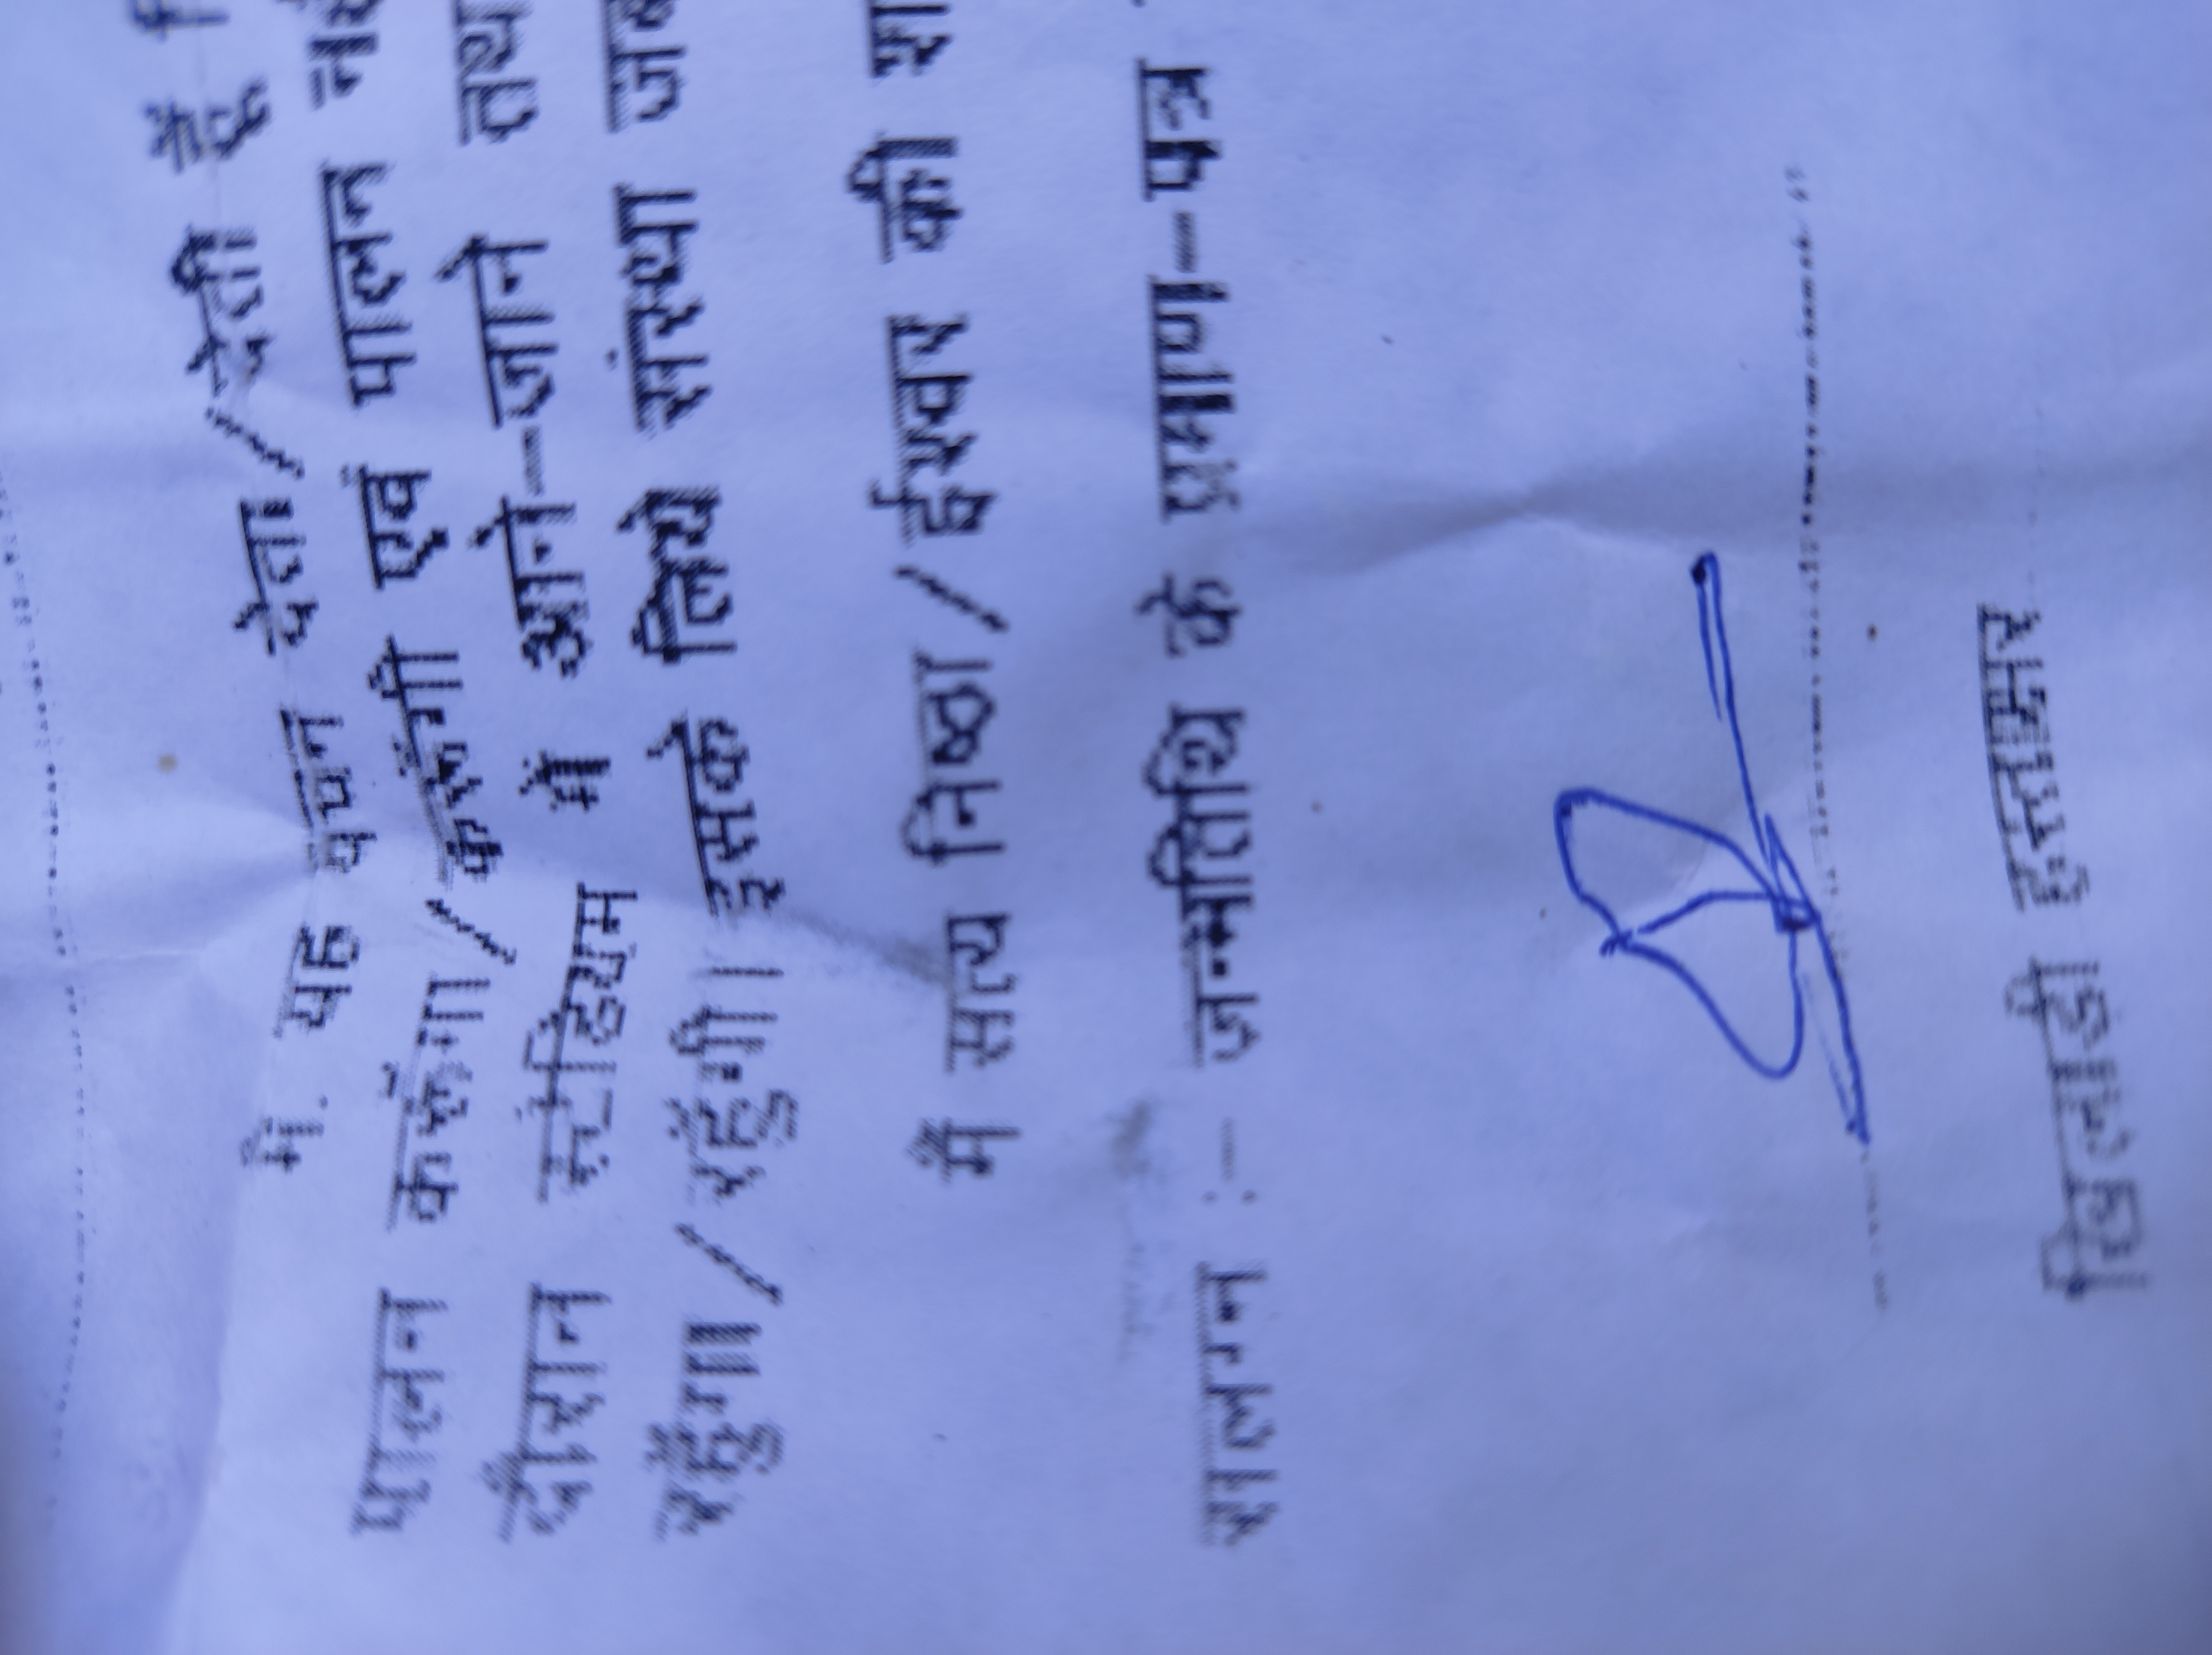 मैं. यह वचन देता/देती हूँ
पालन करूंगा/करूंगी एवं पालन
दौरान स्टेडियम में आने-जाने तथ
रहूंगा/रहूंगी। इसके लिये संस्था जव
मैं सत्य निष्ठा/ईश्वर की शप
संलग्न :- जन्मतिथि के
खिलाड़ी हस्ताक्षर